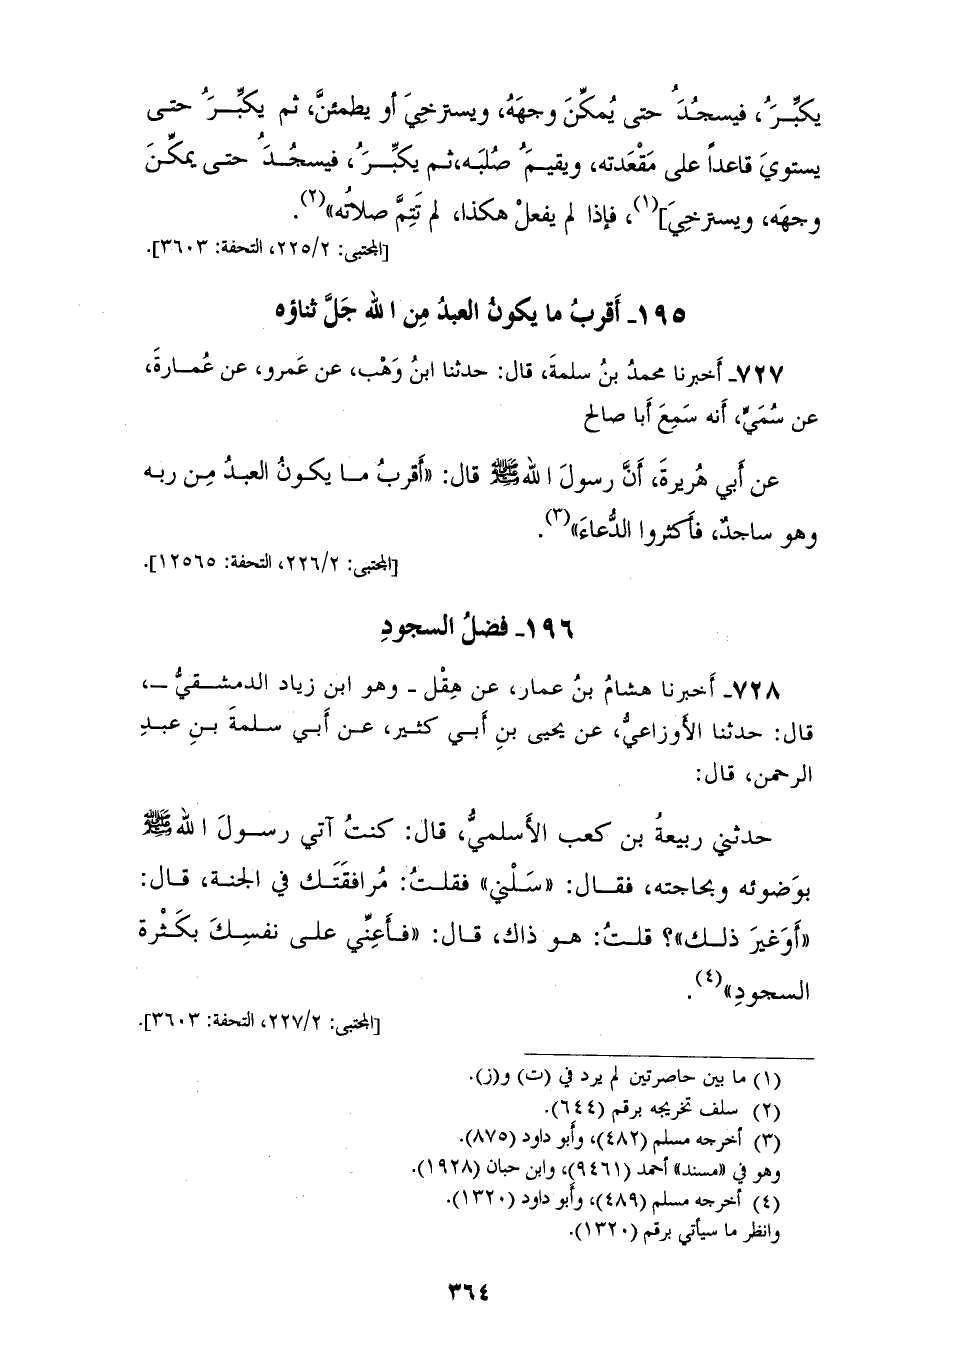 يكبِّرَُ، فيسجدَُ حتى يُمكِّنَ وجهَهُ، ويسترخِيَ أو يطمئنَّ، ثم يكبِّـرَُ حتـى
يستويَ قاعداً على مَقْعَدته، ويقيمَُ صُلبَه،ثـم يكبِّـرَُ، فيسجُـدَُ حتـى يمكِّـنَ
وجهَه، ويسترخِيَ](١)، فإذا لم يفعلْ هكذا، لم تَتِمَّ صلاتُه»(٢).
[المجتبى: ٢٢٥/٢، التحفة: ٣٦٠٣].
١٩٥ـ أَقربُ ما يكونُ العبدُ مِن الله جَلَّ ثناؤه
٧٢٧ـ أخبرنا محمدُ بنُ سلمةَ، قال: حدثنا ابنُ وَهْب، عن عَمرو، عن عُمـارةَ،
عن سُمَيٍّ، أنه سَمِعَ أبا صالح
عن أَبي هُريرةَ، أنَّ رسولَ اللهﷺ قال: «أقربُ مـا يكـونُ العبدُ مِـن ربـه
وهو ساجدٌ، فأكثروا الدُّعاءَ»(٣).
[المجتبى: ٢٢٦/٢، التحفة: ١٢٥٦٥].
١٩٦ـ فضلُ السجودِ
٧٢٨ـ أخبرنا هشامُ بنُ عمار، عن هِقْل ـ وهو ابن زياد الدمشـقيُّ ـ،
قال: حدثنا الأوزاعيُّ، عن يحيى بنِ أبـي كثـير، عـن أبـي سـلمةَ بـنِ عبـدِ
الرحمن، قال:
حدثني ربيعةُ بن كعب الأسلميُّ، قال: كنتُ آتي رسـولَ اللهﷺ
بوَضوئه وبحاجته، فقـال: «سَلْني» فقلتُ: مُرافقَتَـك في الجنة، قـال:
«أوَغيرَ ذلـك»؟ قلـتُ: هـو ذاك، قـال: «فـأَعِنِّي علـى نفسِـكَ بكَـثْرة
السجودِ»(٤).
[المجتبى: ٢٢٧/٢، التحفة: ٣٦٠٣].
(١) ما بين حاصرتين لم يرد في (ت) و(ز).
(٢) سلف تخريجه برقم (٦٤٤).
(٣) أخرجه مسلم (٤٨٢)، وأبو داود (٨٧٥).
وهو في «مسند» أحمد (٩٤٦١)، وابن حبان (١٩٢٨).
(٤) أخرجه مسلم (٤٨٩)، وأبو داود (١٣٢٠).
وانظر ما سيأتي برقم (١٣٢٠).
٣٦٤